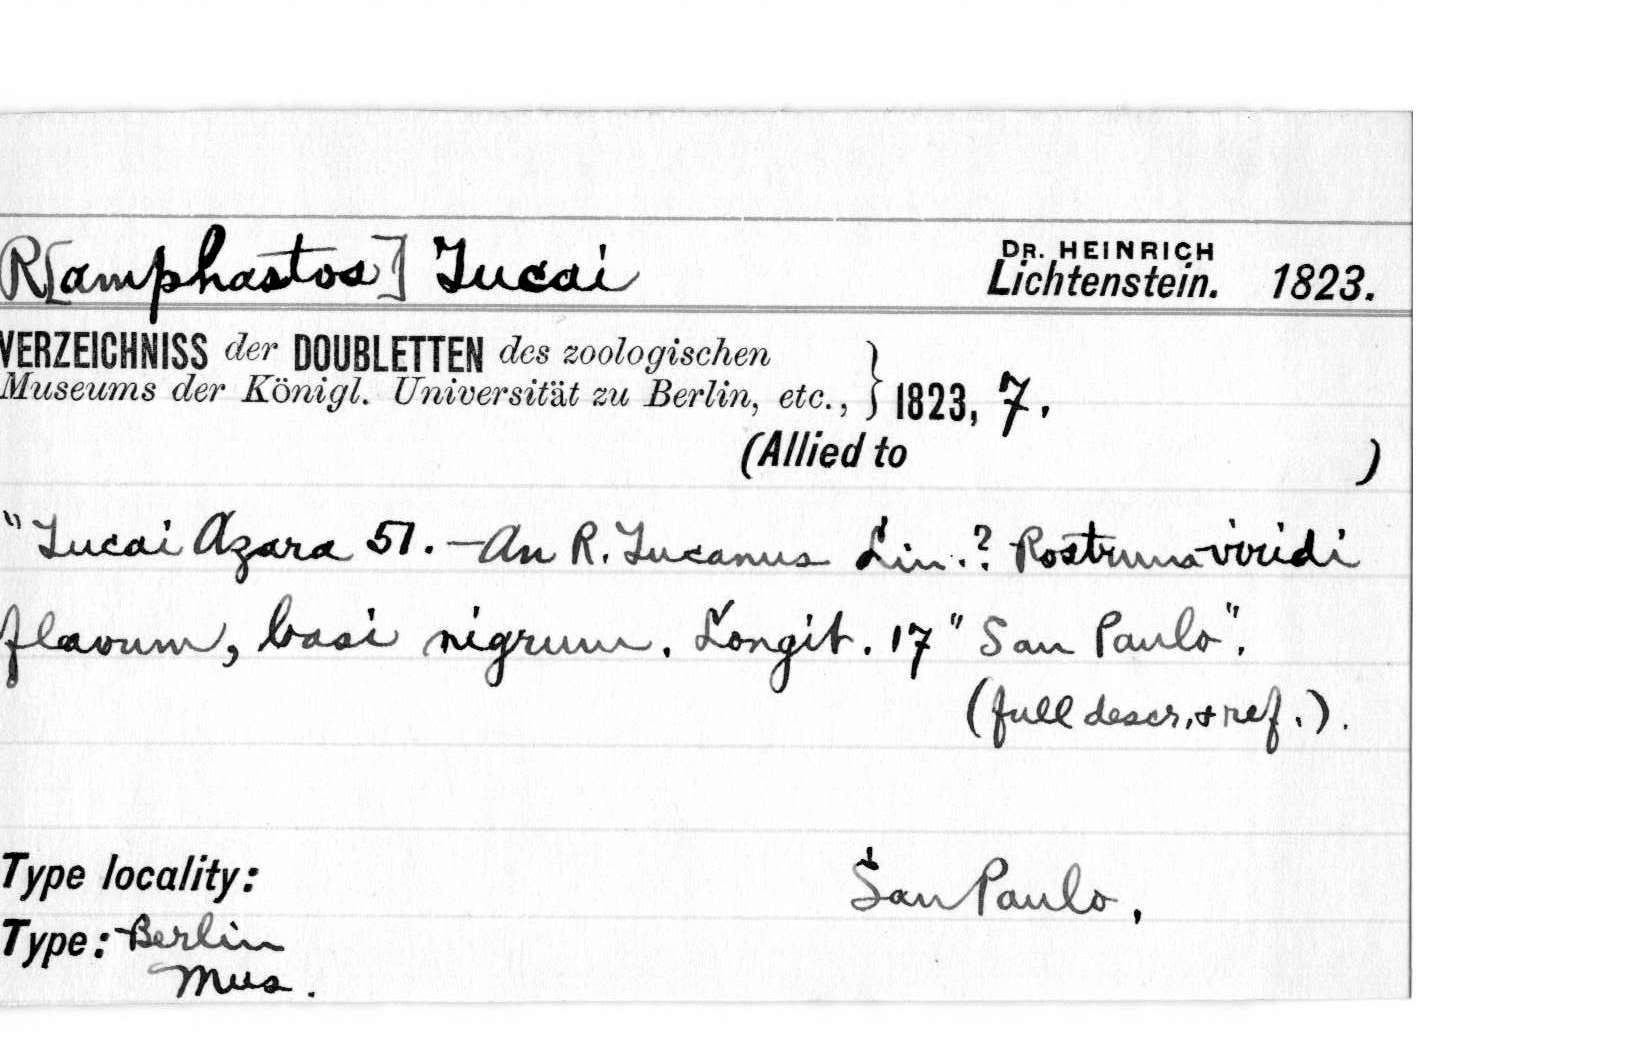 R[amphastos] Tucai
DR. HEINRICH
Lichtenstein. 1823.
VERZEICHNISS der DOUBLETTEN des zoologischen
Museums der Königl. Universität zu Berlin, etc., } 1823, 7.
(Allied to )
"Tucai Azara 51. — An R. Tucanus Lin.? Rostrum viridi
flavum, basi nigrum. Longit. 17" San Paulo".
(full descr. & ref.).
Type locality: San Paulo,
Type: Berlin
Mus.